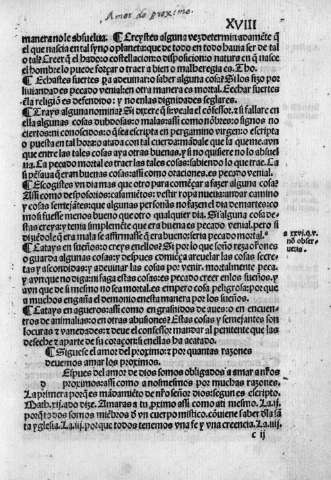 Amor de proximo.
XVIII
manera no le absuelua. ¶ Creystes alguna vez determinadamẽte q̃
el que nascia en tal syno o planeta: que de todo en todo hauia ser de tal
o tal? Creer q̃ el hado: o costellacion: o disposicion: o natura en q̃ nasce
el hombre lo puede forçar o traer a bien o mal heregia es. Tho.
¶ Echastes suertes pa adeuinar o saber alguna cosa? Si los fizo por
liuiandad es pecado venial: en otra manera es mortal. Echar suertes
ẽla religiõ es defendido: y no en las dignidades seglares.
¶ Trays alguna nomina? Si dixere q̃ si: vea la el cõfessor. z si fallare en
ella algunas cosas dubdosas: o malas: assi como nõbres: o signos no
ciertos: ni conoscidos: o q̃ sea escripta en pergamino virgen: o escripta
o puesta en tal hora: o atada con tal cuerda: mãdale que la queme. aun
que entre las tales cosas aya otras buenas. y si no quisiere no lo absuel
ua. Ca pecado mortal es traer las tales cosas: sabiendo lo que trae. Ca
si pẽsaua q̃ eran buenas cosas: assi como oraciones. es pecado venial.
¶ Escogistes vn dia mas que otro para començar a fazer alguna cosa?
Assi como desposorios: casamiẽtos: vestir ropa nueua: andar camino
y cosas semejãtes: que algunas personas no fazen el dia de martes: co
mo si fuesse menos bueno que otro qualquier dia. Si alguna cosa de
stas crey a: y tenia simplemente que era buena es pecado venial. pero si
diziẽdole q̃ era mala se affirmasse q̃ era buena: seria pecado mortal.
¶ Catays en sueños: o creys en ellos? Si por lo que soño reza oraciones
o guarda algunas cosas: y despues comiẽça a reuelar las cosas secre
tas y ascondidas: z adeuinar las cosas por venir. mortalmente peca.
y aun que no digan: o faga estas cosas: es pecado creer en los sueños. y
aun que de si mesmo no sea mortal. es empero cosa peligrosa: por que
a muchos engaña el demonio en esta manera por los sueños.
¶ Catays en agueros: assi como en grasnidos de aues: o en encuen
tros de animalias: o en otras abusiones? Estas cosas y semejantes son
locuras z vanedades: z deue el confessor mandar al penitente que las
deseche z aparte de su coraçon: si en ellas ha acatado.
¶ Siguese el amor del proximo: z por quantas razones
deuemos amar los proximos.
d Espues del amor de dios somos obligados a amar a nr̃os
proximos: assi como a nos mesmos por muchas razones.
La primera porq̃ es mãdamiẽto de nr̃o señor dios: segun es escripto.
Math. xij. ado dize. Amaras a tu proximo assi como a ti mesmo. La .ij.
porq̃ todos somos miẽbros d̃ vn cuerpo mistico. cõuiene saber dl̃a sã
ta yglesia. La .iij. por que todos tenemos vna fe y vna creencia. La .iiij.
c ij
xxvi. q. v.
nõ obser
uetis.